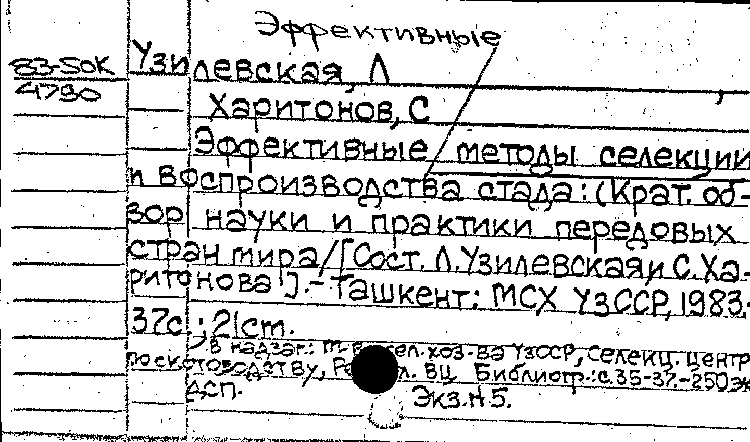 Эффективные
83-50К
4790
Узилевская, Л
Харитонов, С
Эффективные методы селекции
и воспроизводства стада: (Крат. об-
зор науки и практики передовых
стран мира/[Сост. Л.Узилевская, С.Ха-
ритонова].- Ташкент: МСХ УзССР, 1983.
37с.; 21см.
В надзаг.: М-во сел. хоз-ва УзССР, Селекц. центр
по скотоводству, ВЦ Библиогр.: с.35-37.-250эк
ДСП.
Экз.Н5.